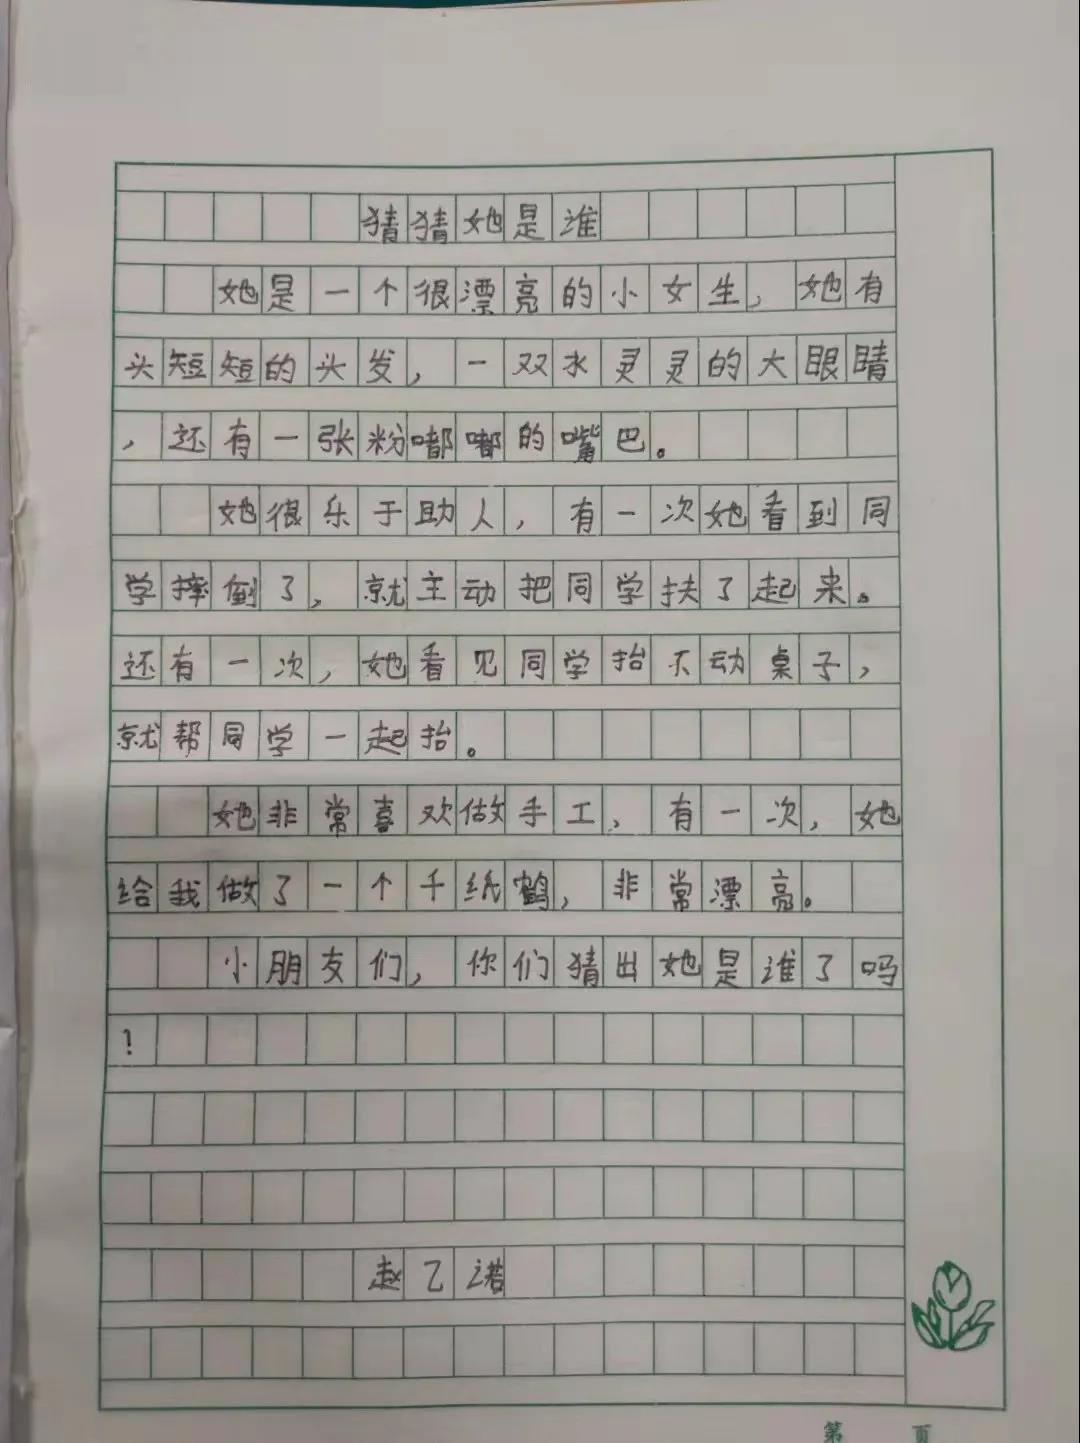 猜猜她是谁
她是一个很漂亮的小女生，她有
头短短的头发，一双水灵灵的大眼睛
，还有一张粉嘟嘟的嘴巴。
她很乐于助人，有一次她看到同
学摔倒了，就主动把同学扶了起来。
还有一次，她看见同学抬不动桌子，
就帮同学一起抬。
她非常喜欢做手工，有一次，她
给我做了一个千纸鹤，非常漂亮。
小朋友们，你们猜出她是谁了吗
！
赵乙诺
第 页